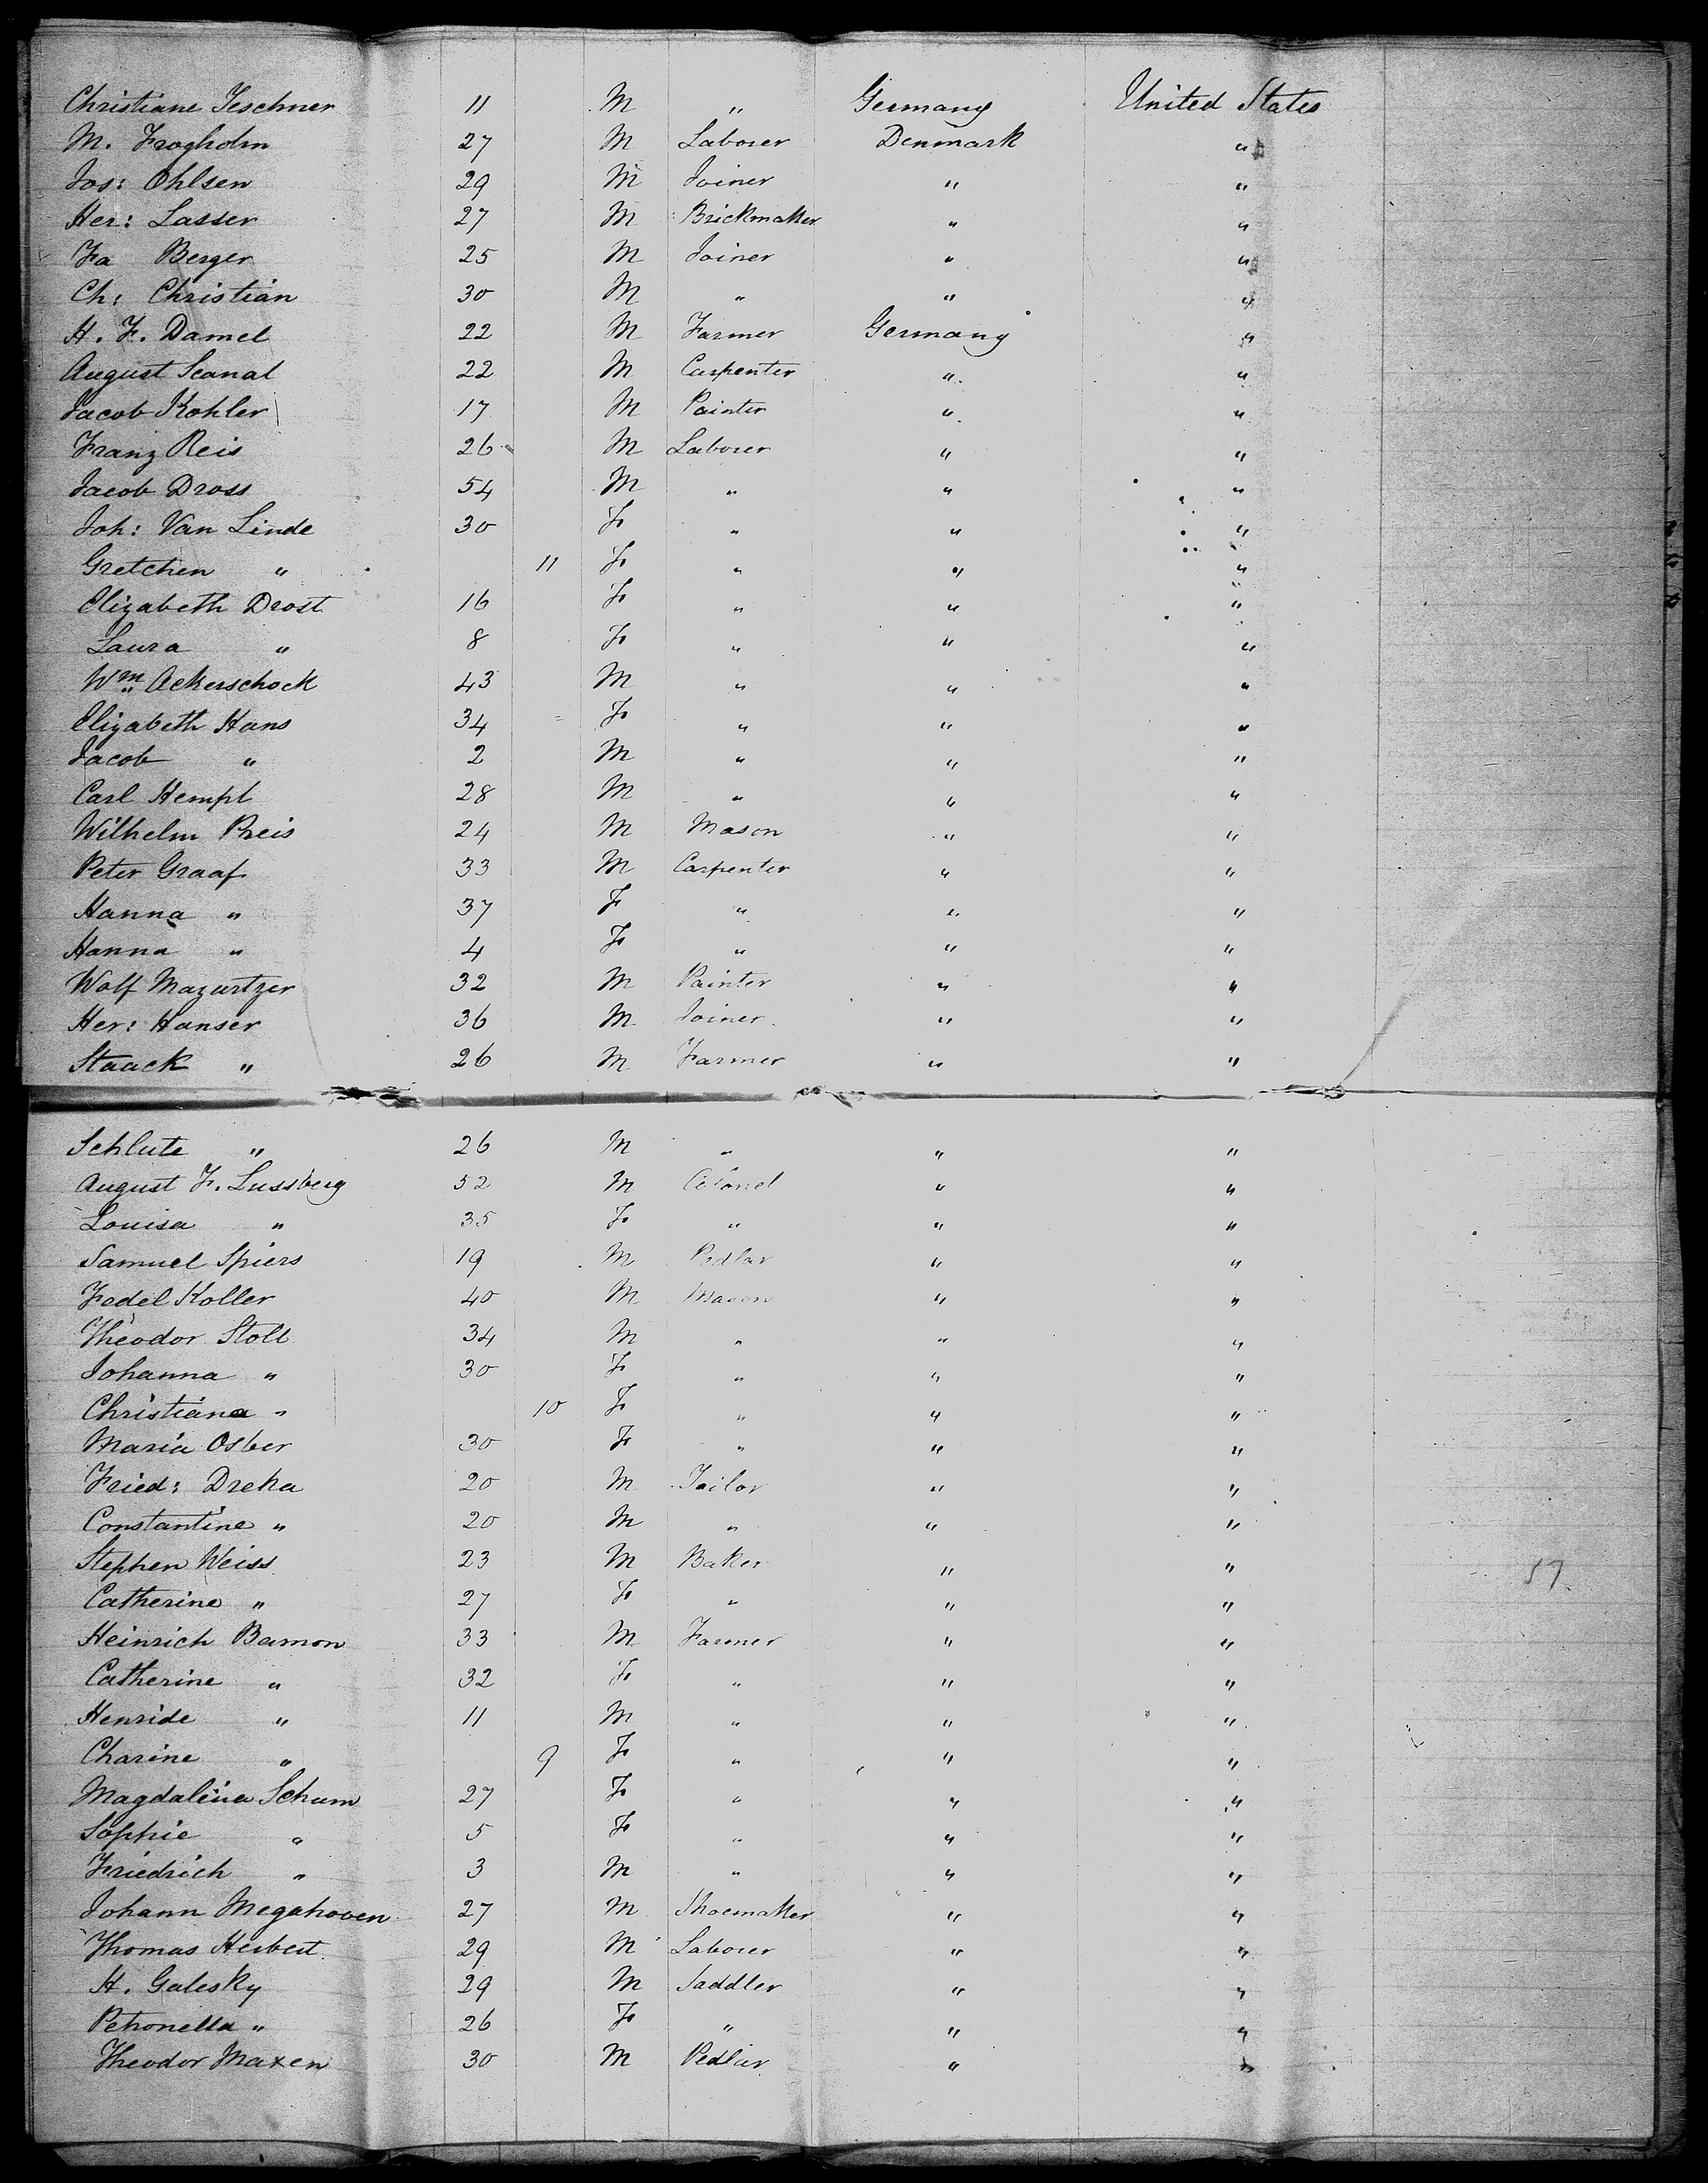 Christiane Teschner 11 M " Germany United States
M. Frogholm 27 M Laborer Denmark "
Jos: Ohlsen 29 M Joiner " "
Her: Lasser 27 M Brickmaker " "
Fa Berger 25 M Joiner " "
Ch: Christian 30 M " " "
H. F. Damel 22 M Farmer Germany "
August Scanal 22 M Carpenter " "
Jacob Kohler 17 M Painter " "
Franz Reis 26 M Laborer " "
Jacob Dross 54 M " " "
Joh: Van Linde 30 F " " "
Gretchen " 11 F " " "
Elizabeth Drost 16 F " " "
Laura " 8 F " " "
Wm Ackerschock 43 M " " "
Elizabeth Hans 34 F " " "
Jacob " 2 M " " "
Carl Hempl 28 M " " "
Wilhelm Preis 24 M Mason " "
Peter Graaf 33 M Carpenter " "
Hanna " 37 F " " "
Hanna " 4 F " " "
Wolf Mazurtzer 32 M Painter " "
Her: Hanser 36 M Joiner " "
Staack " 26 M Farmer " "
Schlute " 26 M " " "
August F. Lussberg 52 M Colonel " "
Louisa " 35 F " " "
Samuel Spiers 19 M Pedlar " "
Fedel Koller 40 M Mason " "
Theodor Stoll 34 M " " "
Johanna " 30 F " " "
Christiana " 10 F " " "
Maria Osber 30 F " " "
Fried: Dreka 20 M Tailor " "
Constantine " 20 M " " "
Stephen Weiss 23 M Baker " " 57
Catherine " 27 F " " "
Heinrich Bamon 33 M Farmer " "
Catherine " 32 F " " "
Henride " 11 M " " "
Charine " 9 F " " "
Magdalina Schum 27 F " " "
Sophie " 5 F " " "
Friedrich " 3 M " " "
Johann Megahoven 27 M Shoemaker " "
Thomas Herbert 29 M Laborer " "
H. Galesky 29 M Saddler " "
Petronella " 26 F " " "
Theodor Maxen 30 M Pedlar " "